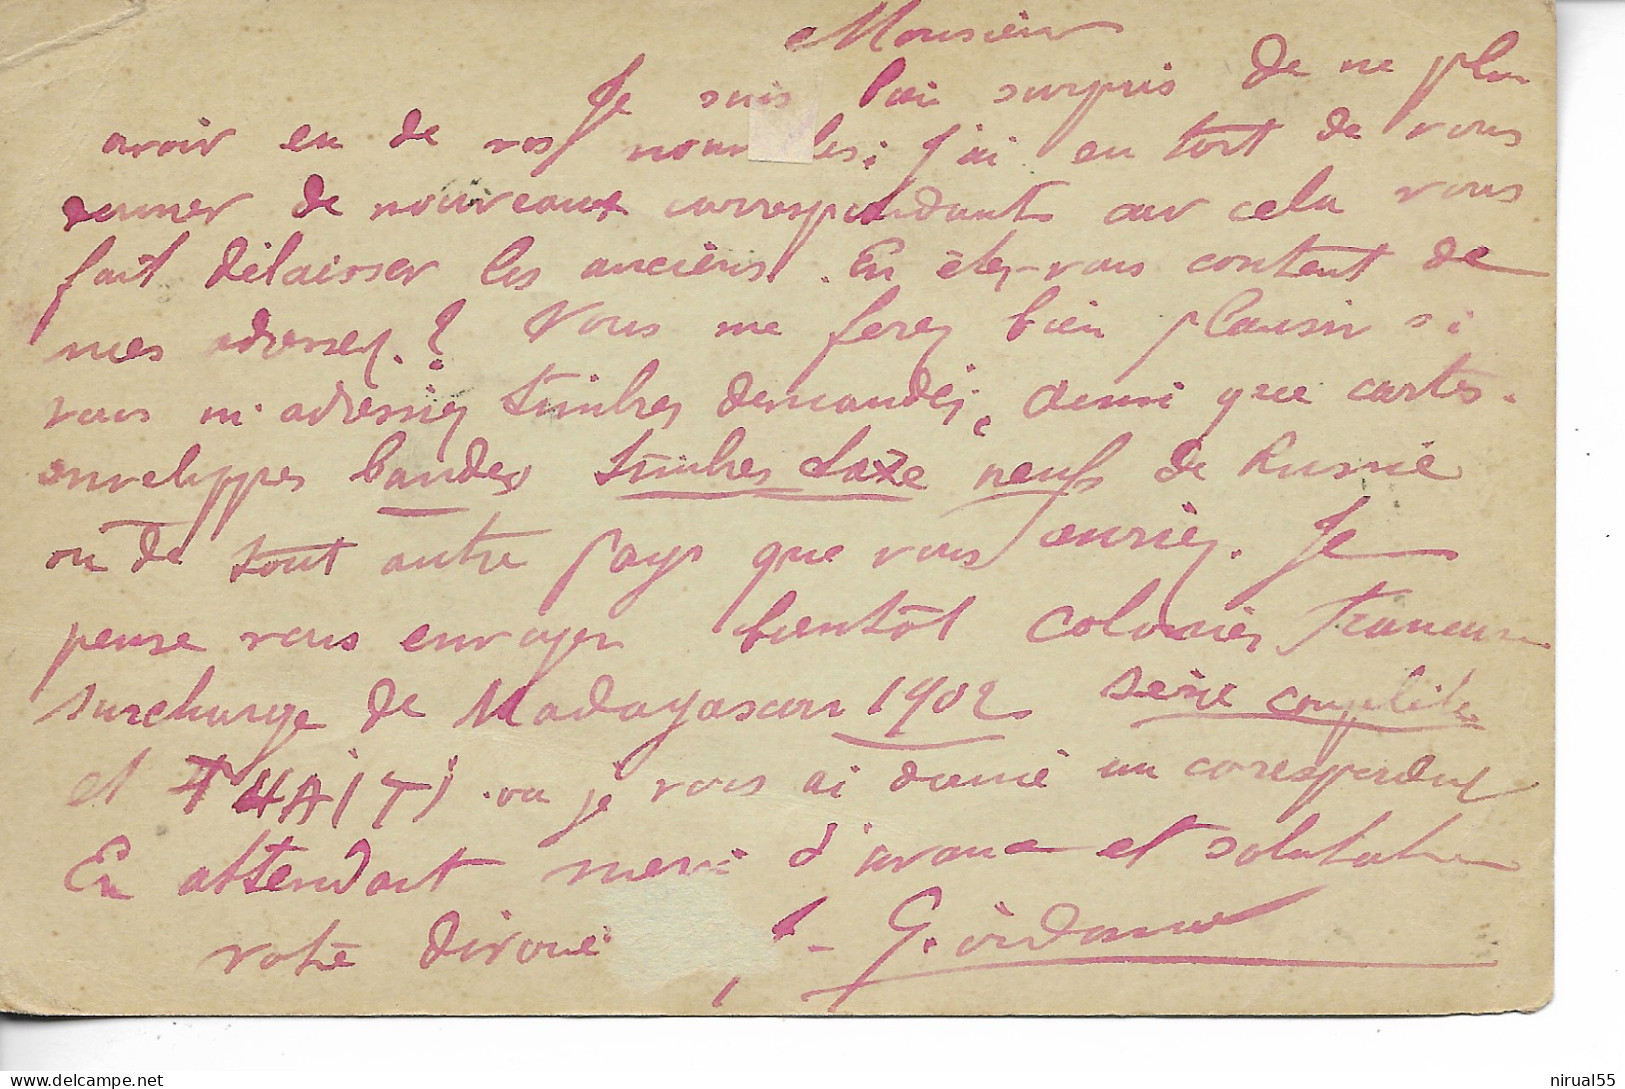 Monsieur
Je suis bien surpris de ne plus
avoir eu de vos nouvelles, j'ai eu tort de vous
donner de nouveaux correspondants car cela vous
fait délaisser les anciens. En êtes-vous content de
mes adresses ? Vous me ferez bien plaisir si
vous m'adressiez timbres demandés, ainsi que cartes-
enveloppes bandes timbres taxe neufs de Russie
ou de tout autre pays que vous auriez. Je
pense vous envoyer bientôt colonies Françaises
surcharge de Madagascar 1902 série complète
et TAHITI ou je vous ai donné un correspondant
En attendant merci d'avance et salutations
votre dévoué Giordano
nirual55